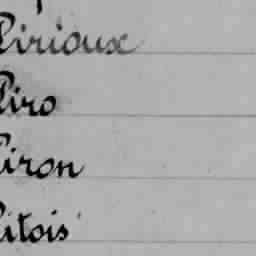 Pirioux
Piro
Piron
Pitois